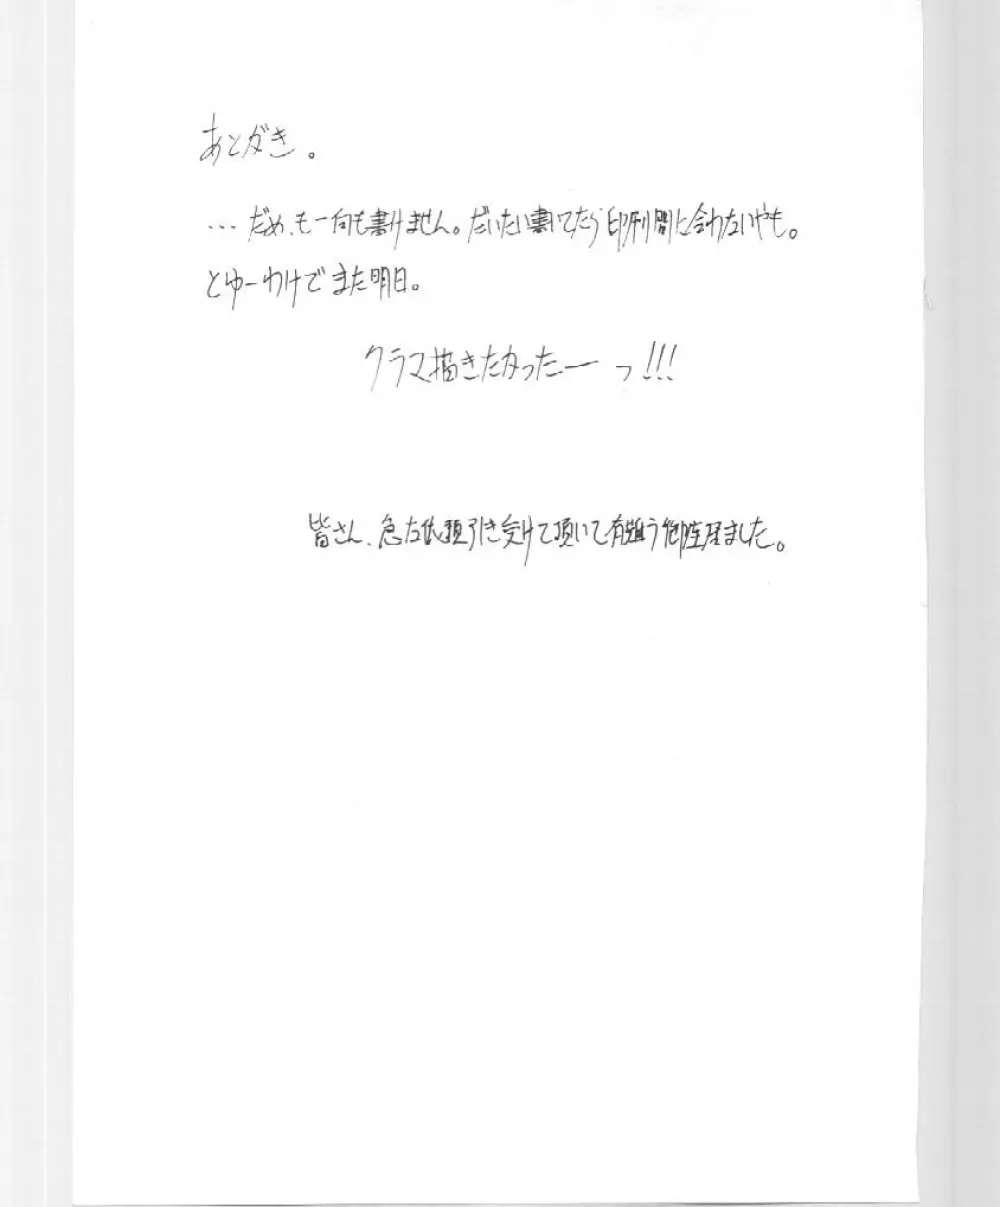 あとがき。
…だめ、もー何も書けません。だいたい書いてたら印刷間に合わないやも。
とゆーわけでまた明日。
クラマ描きたかったーーっ!!!
皆さん、急な依頼引き受けて頂いて有難う御座居ました。